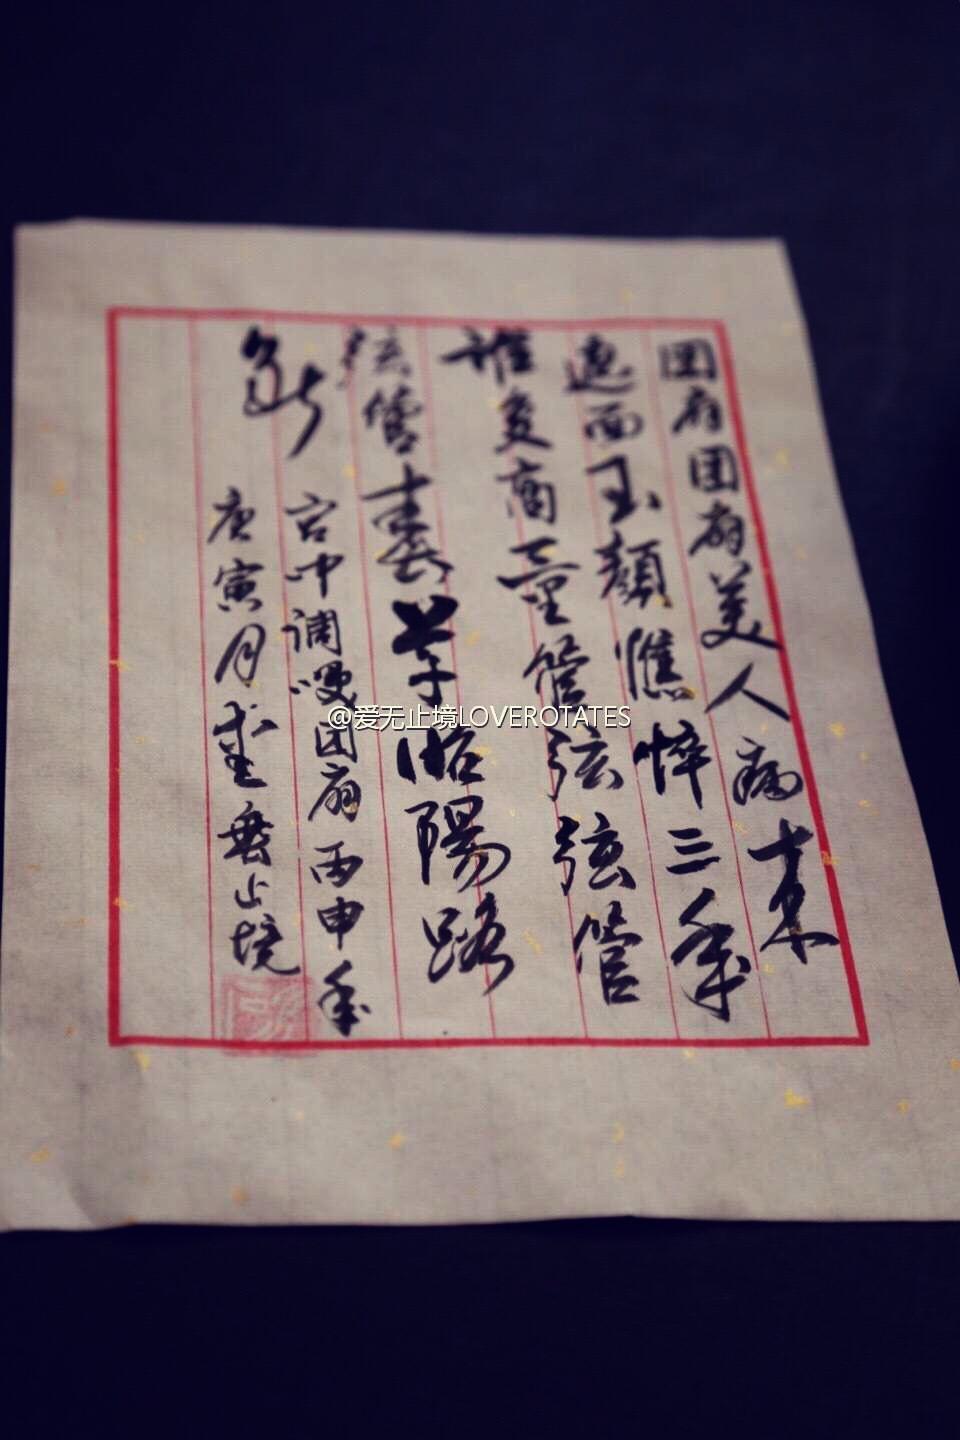 团扇团扇美人病来
遮面玉顏憔悴三年
誰复商量管弦弦管
弦管春草昭陽路
断
宫中调嘆团扇丙申年
庚寅月
止境
@爱无止境LOVEROTATES